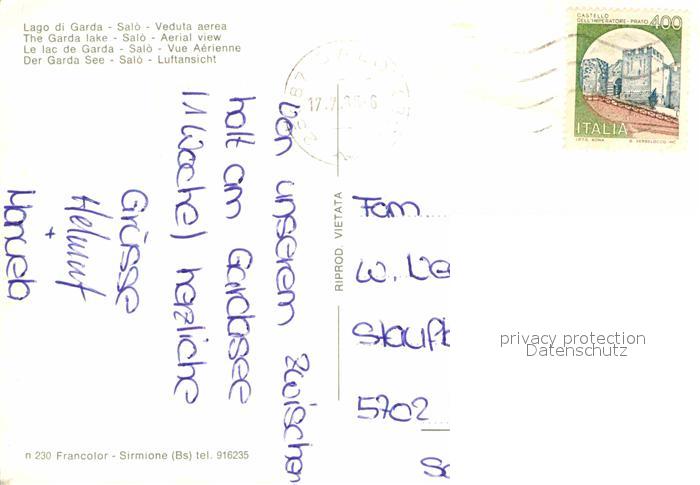 Lago di Garda - Salò - Veduta aerea
The Garda lake - Salò - Aerial view
Le lac de Garda - Salò - Vue Aérienne
Der Garda See - Salò - Luftansicht
CASTELLO
DELL'IMPERATORE - PRATO
400
ITALIA
I.P.Z.S. ROMA
Von unserem Zwischen
halt am Gardasee
(1 Woche) herzliche
Grüsse
Helmut
+
Manuela
RIPROD. VIETATA
Fam
W.
5702
privacy protection
Datenschutz
n 230 Francolor - Sirmione (Bs) tel. 916235